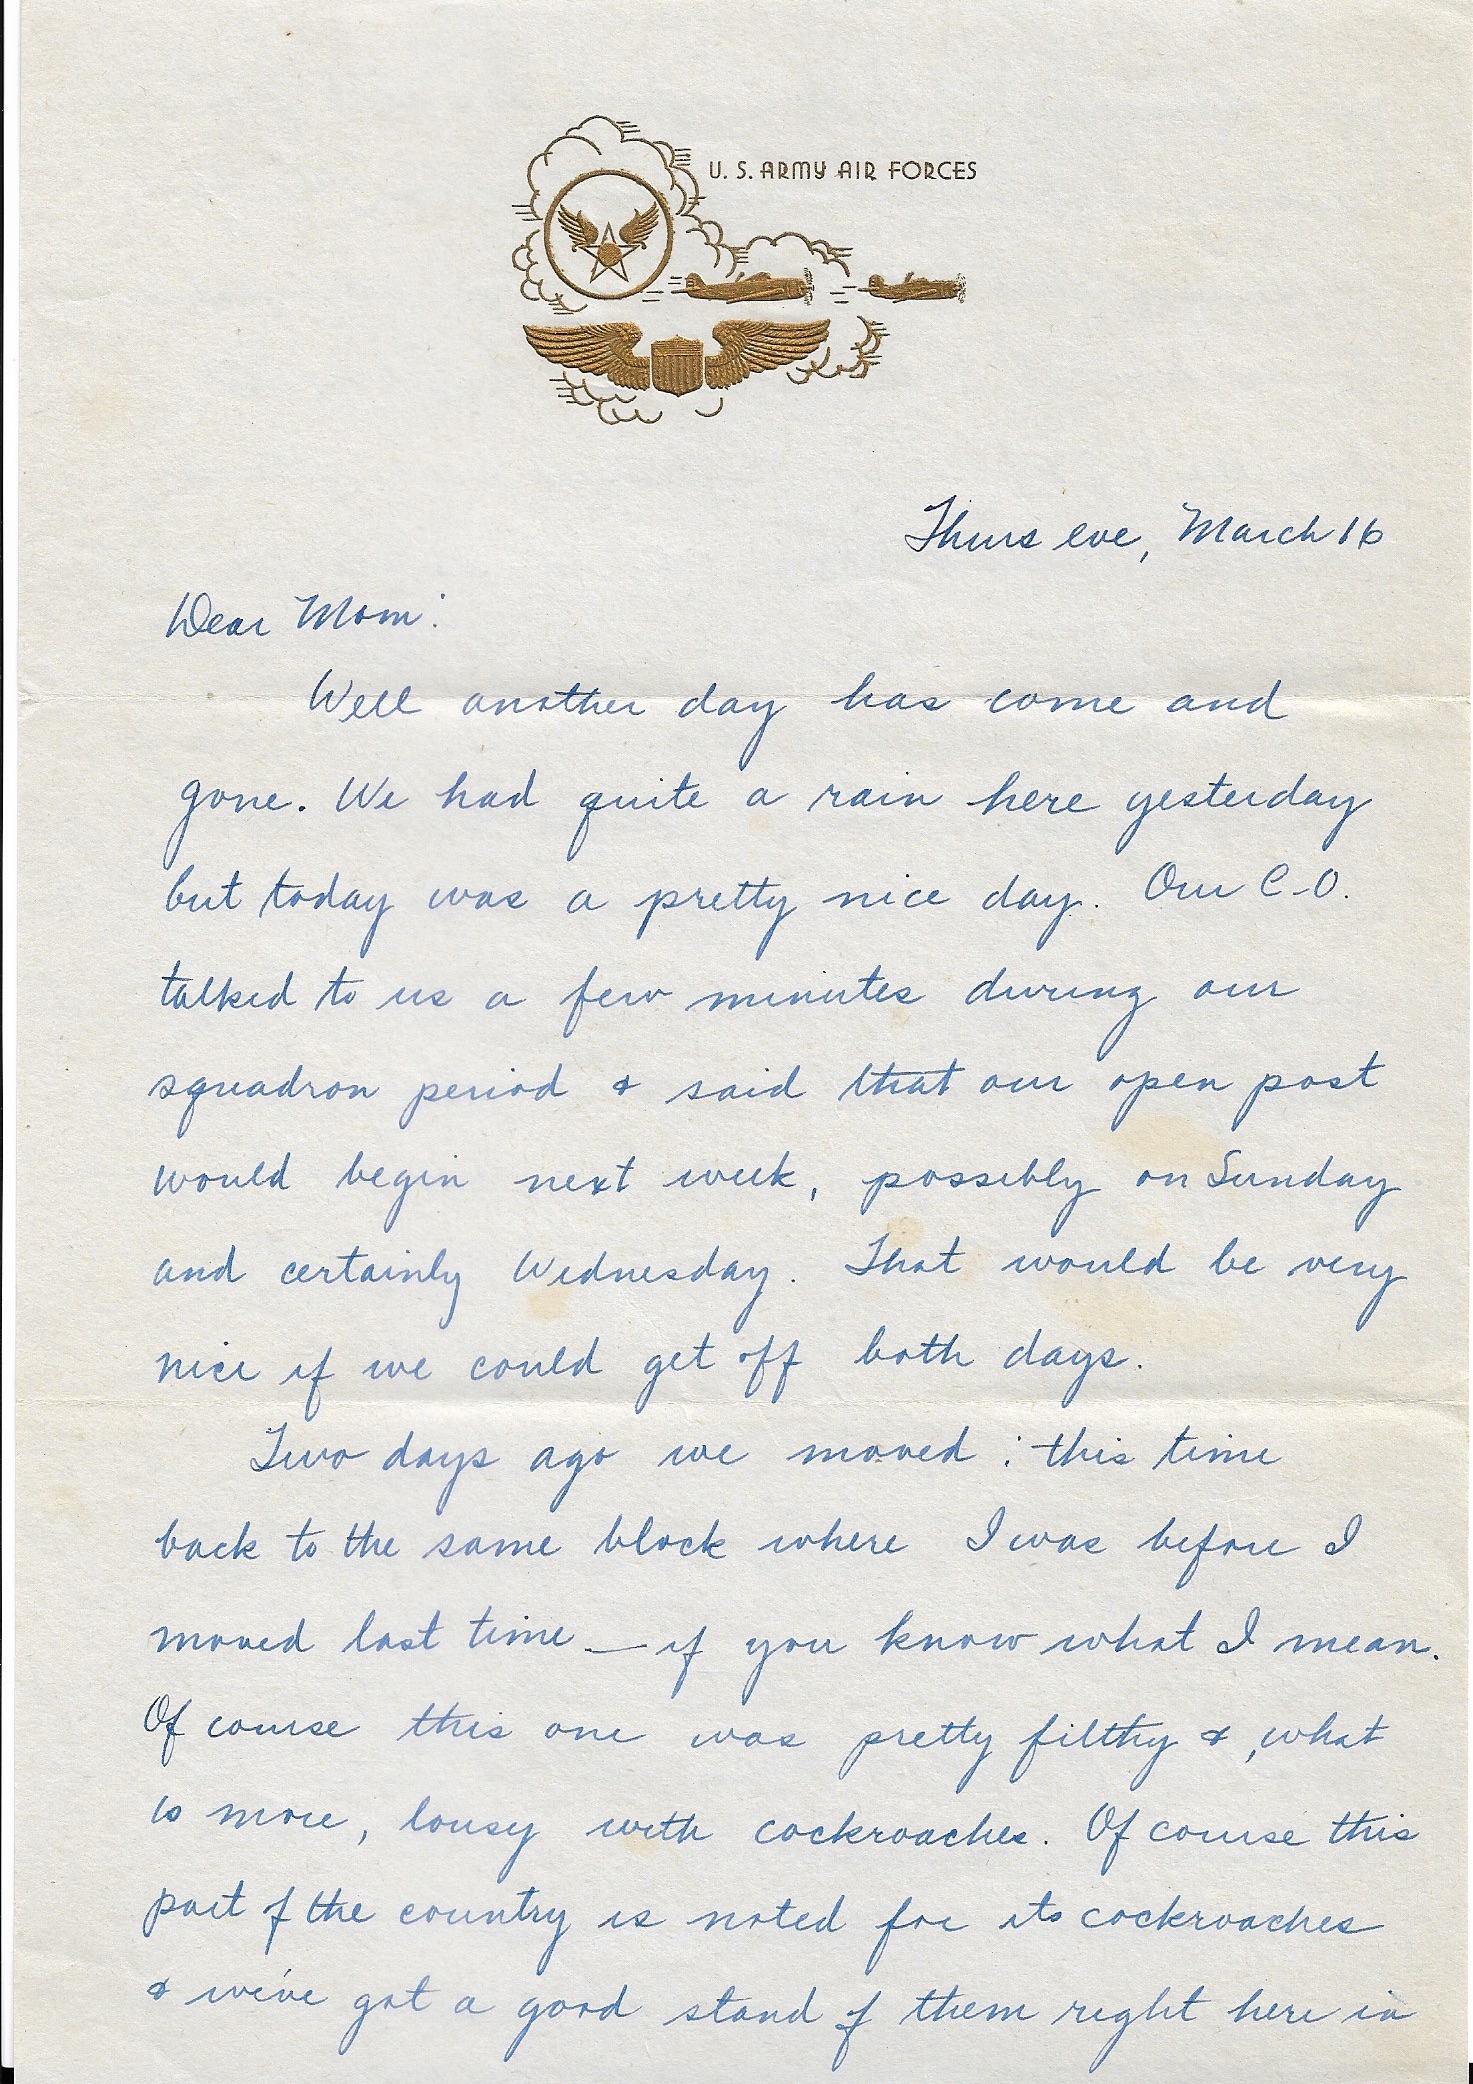 U. S. ARMY AIR FORCES
Thurs eve, March 16
Dear Mom:
Well another day has come and
gone. We had quite a rain here yesterday
but today was a pretty nice day. Our C-O.
talked to us a few minutes during our
squadron period & said that our open post
would begin next week, possibly on Sunday
and certainly Wednesday. That would be very
nice if we could get off both days.
Two days ago we moved; this time
back to the same block where I was before I
moved last time — if you know what I mean.
Of course this one was pretty filthy &, what
is more, lousy with cockroaches. Of course this
part of the country is noted for its cockroaches
& we've got a good stand of them right here in